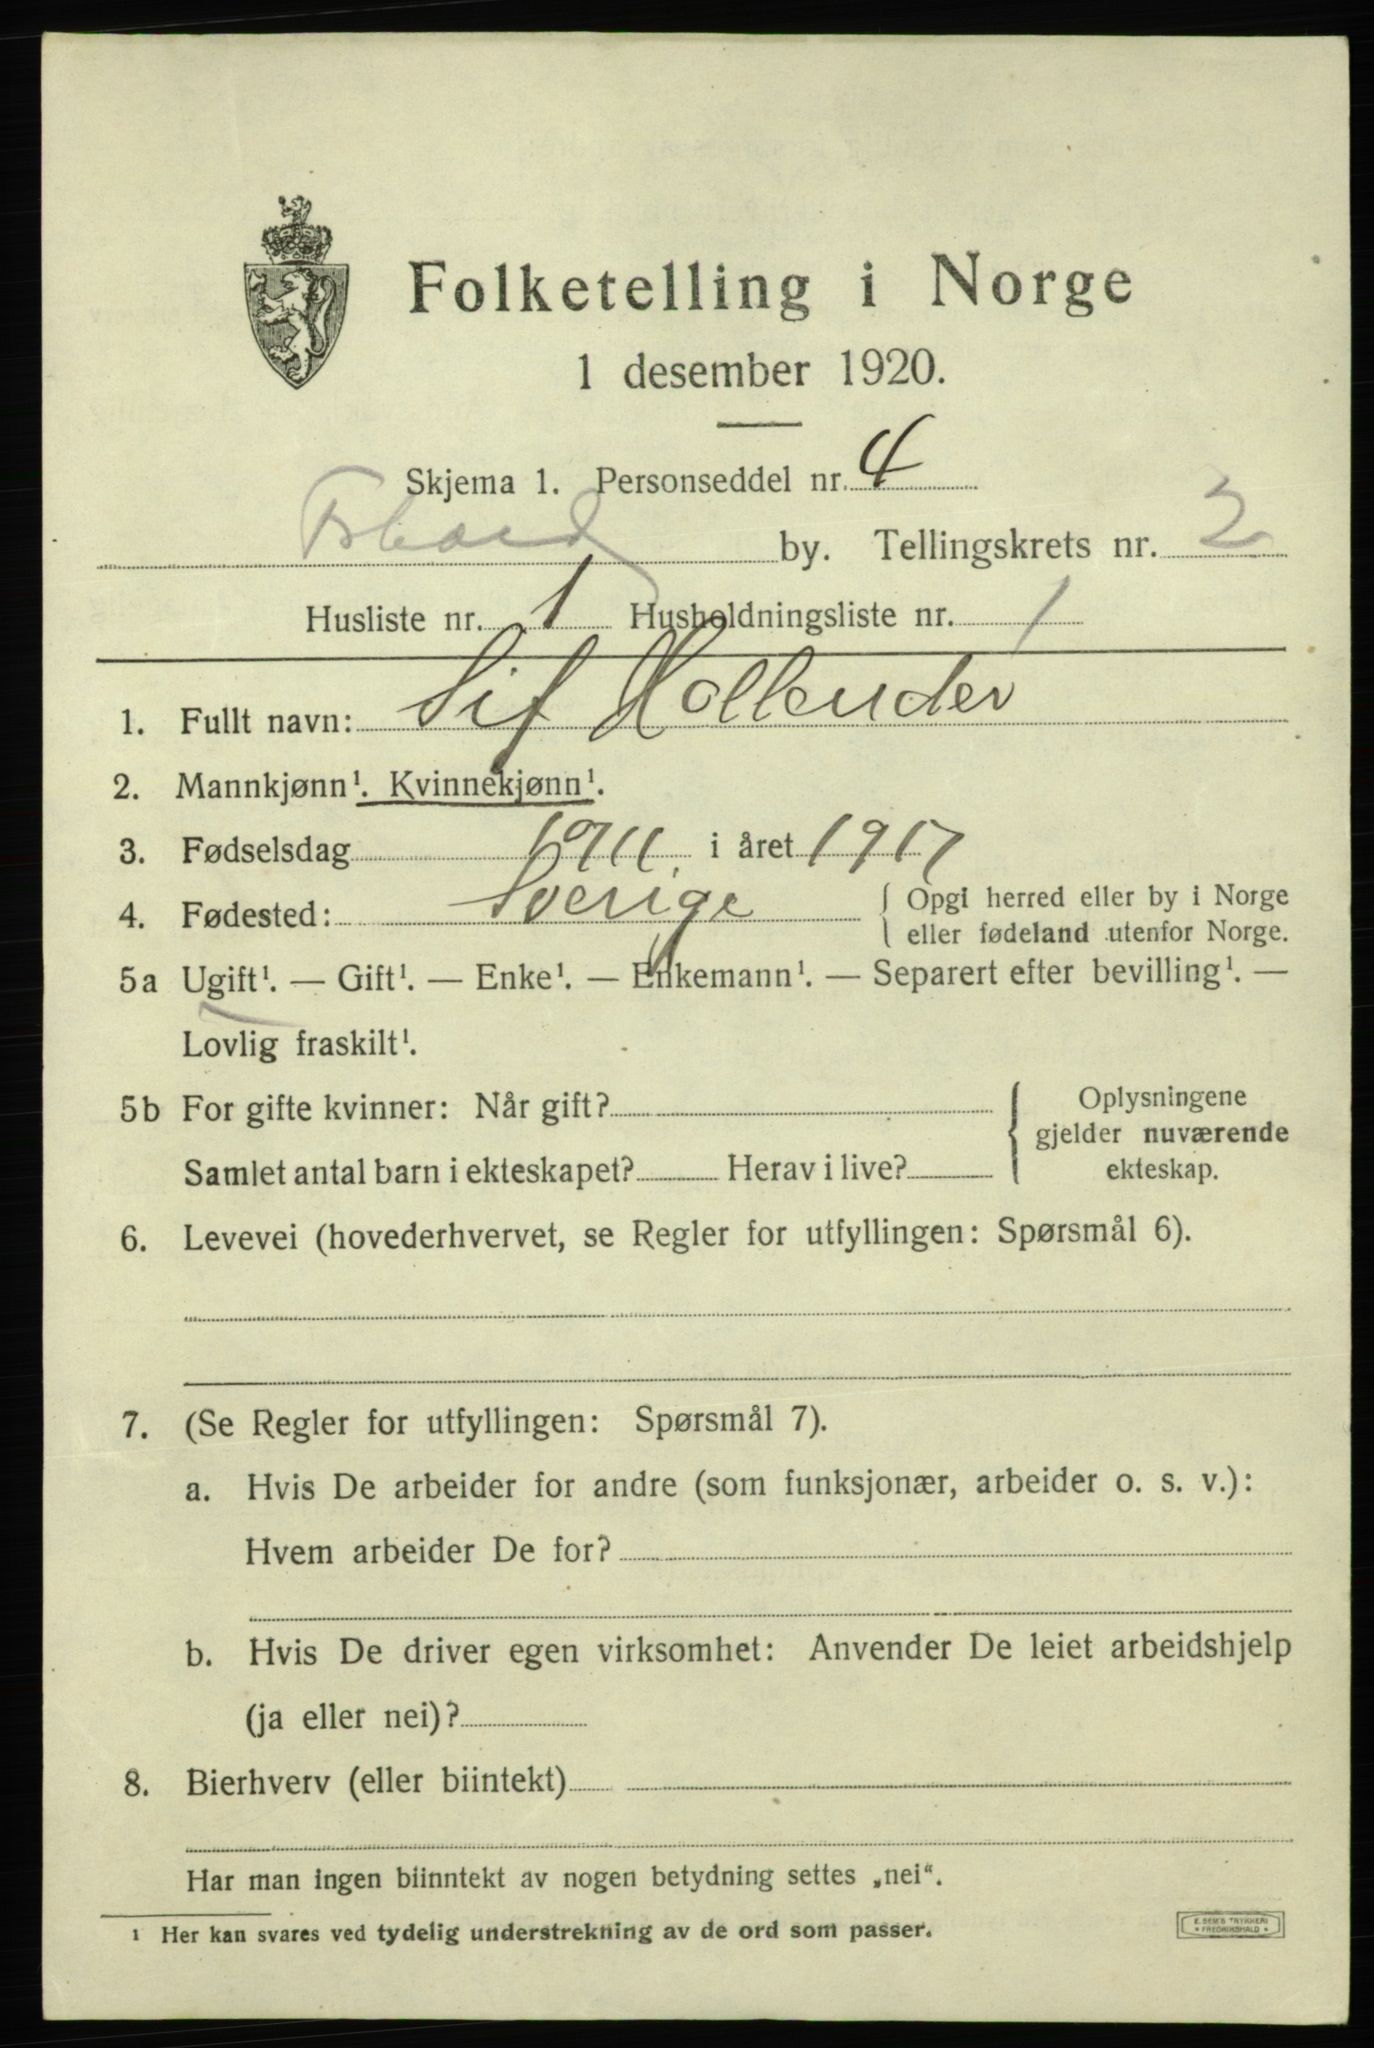 Folketelling i Norge
1 desember 1920.
Skjema 1. Personseddel nr. 4
by. Tellingskrets nr. 2
Husliste nr. 1 Husholdningsliste nr. 1
1. Fullt navn: Sif Hollender
2. Mannkjønn¹. Kvinnekjønn¹.
3. Fødselsdag i året 1917
4. Fødested: Sverige { Opgi herred eller by i Norge
eller fødeland utenfor Norge.
5a Ugift¹. — Gift¹. — Enke¹. — Enkemann¹. — Separert efter bevilling¹. —
Lovlig fraskilt¹.
5b For gifte kvinner: Når gift? { Oplysningene
gjelder nuværende
Samlet antal barn i ekteskapet? Herav i live? ekteskap.
6. Levevei (hovederhvervet, se Regler for utfyllingen: Spørsmål 6).
7. (Se Regler for utfyllingen: Spørsmål 7).
a. Hvis De arbeider for andre (som funksjonær, arbeider o. s. v.):
Hvem arbeider De for?
b. Hvis De driver egen virksomhet: Anvender De leiet arbeidshjelp
(ja eller nei)?
8. Bierhverv (eller biintekt)
Har man ingen biinntekt av nogen betydning settes „nei“.
¹ Her kan svares ved tydelig understrekning av de ord som passer.
E. SEM'S TRYKKERI
FREDRIKSHALD